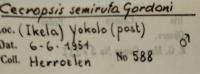 Cecropsis semirufa Gordoni
Loc. (Ikela) Yokolo (post)
Dat. 6-6-1951 ♂
Coll. Herroelen No 588